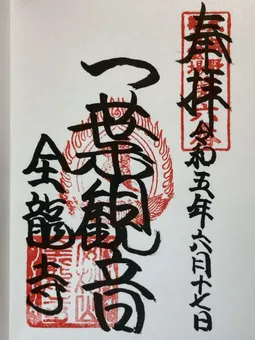 奉拝 令和五年六月十七日
一葉観音
全龍寺